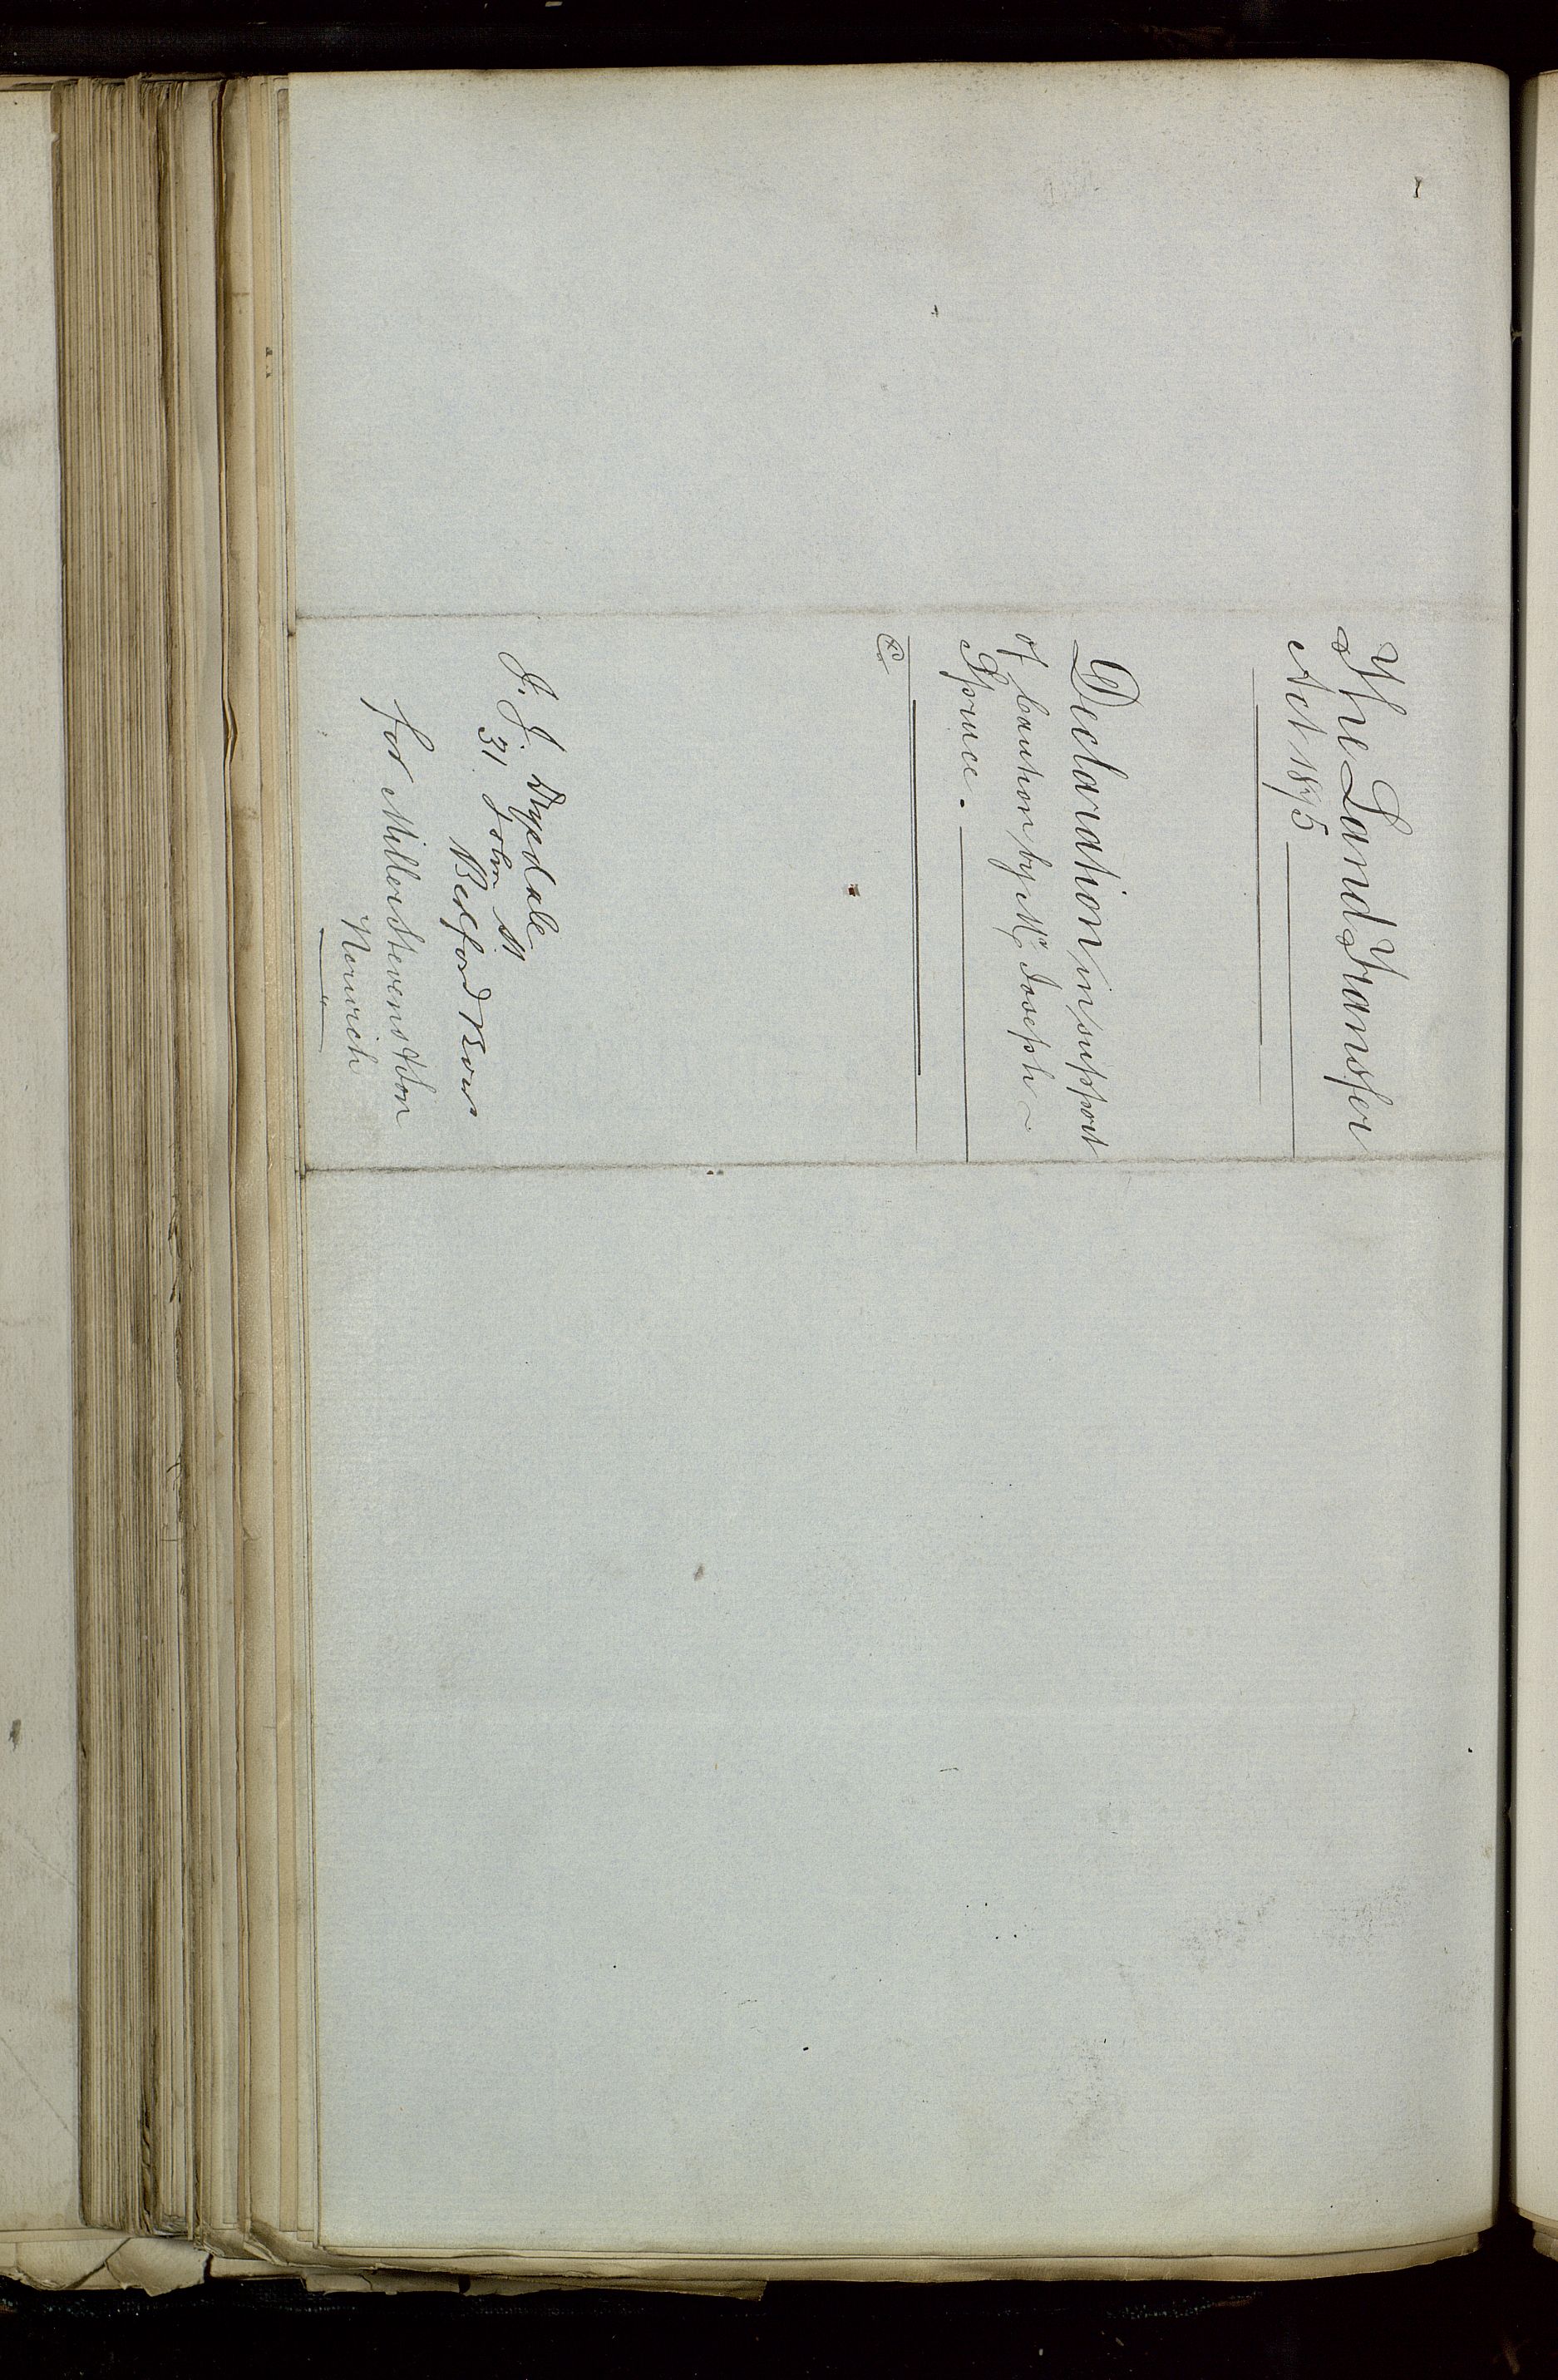 The Land Transfer
Act 1875
Declaration in support
of Caution by Mr. Joseph
Spruce.
J. J. Dyedale
31 John St
Bedford Row
for Miller Stevens & Son
Norwich